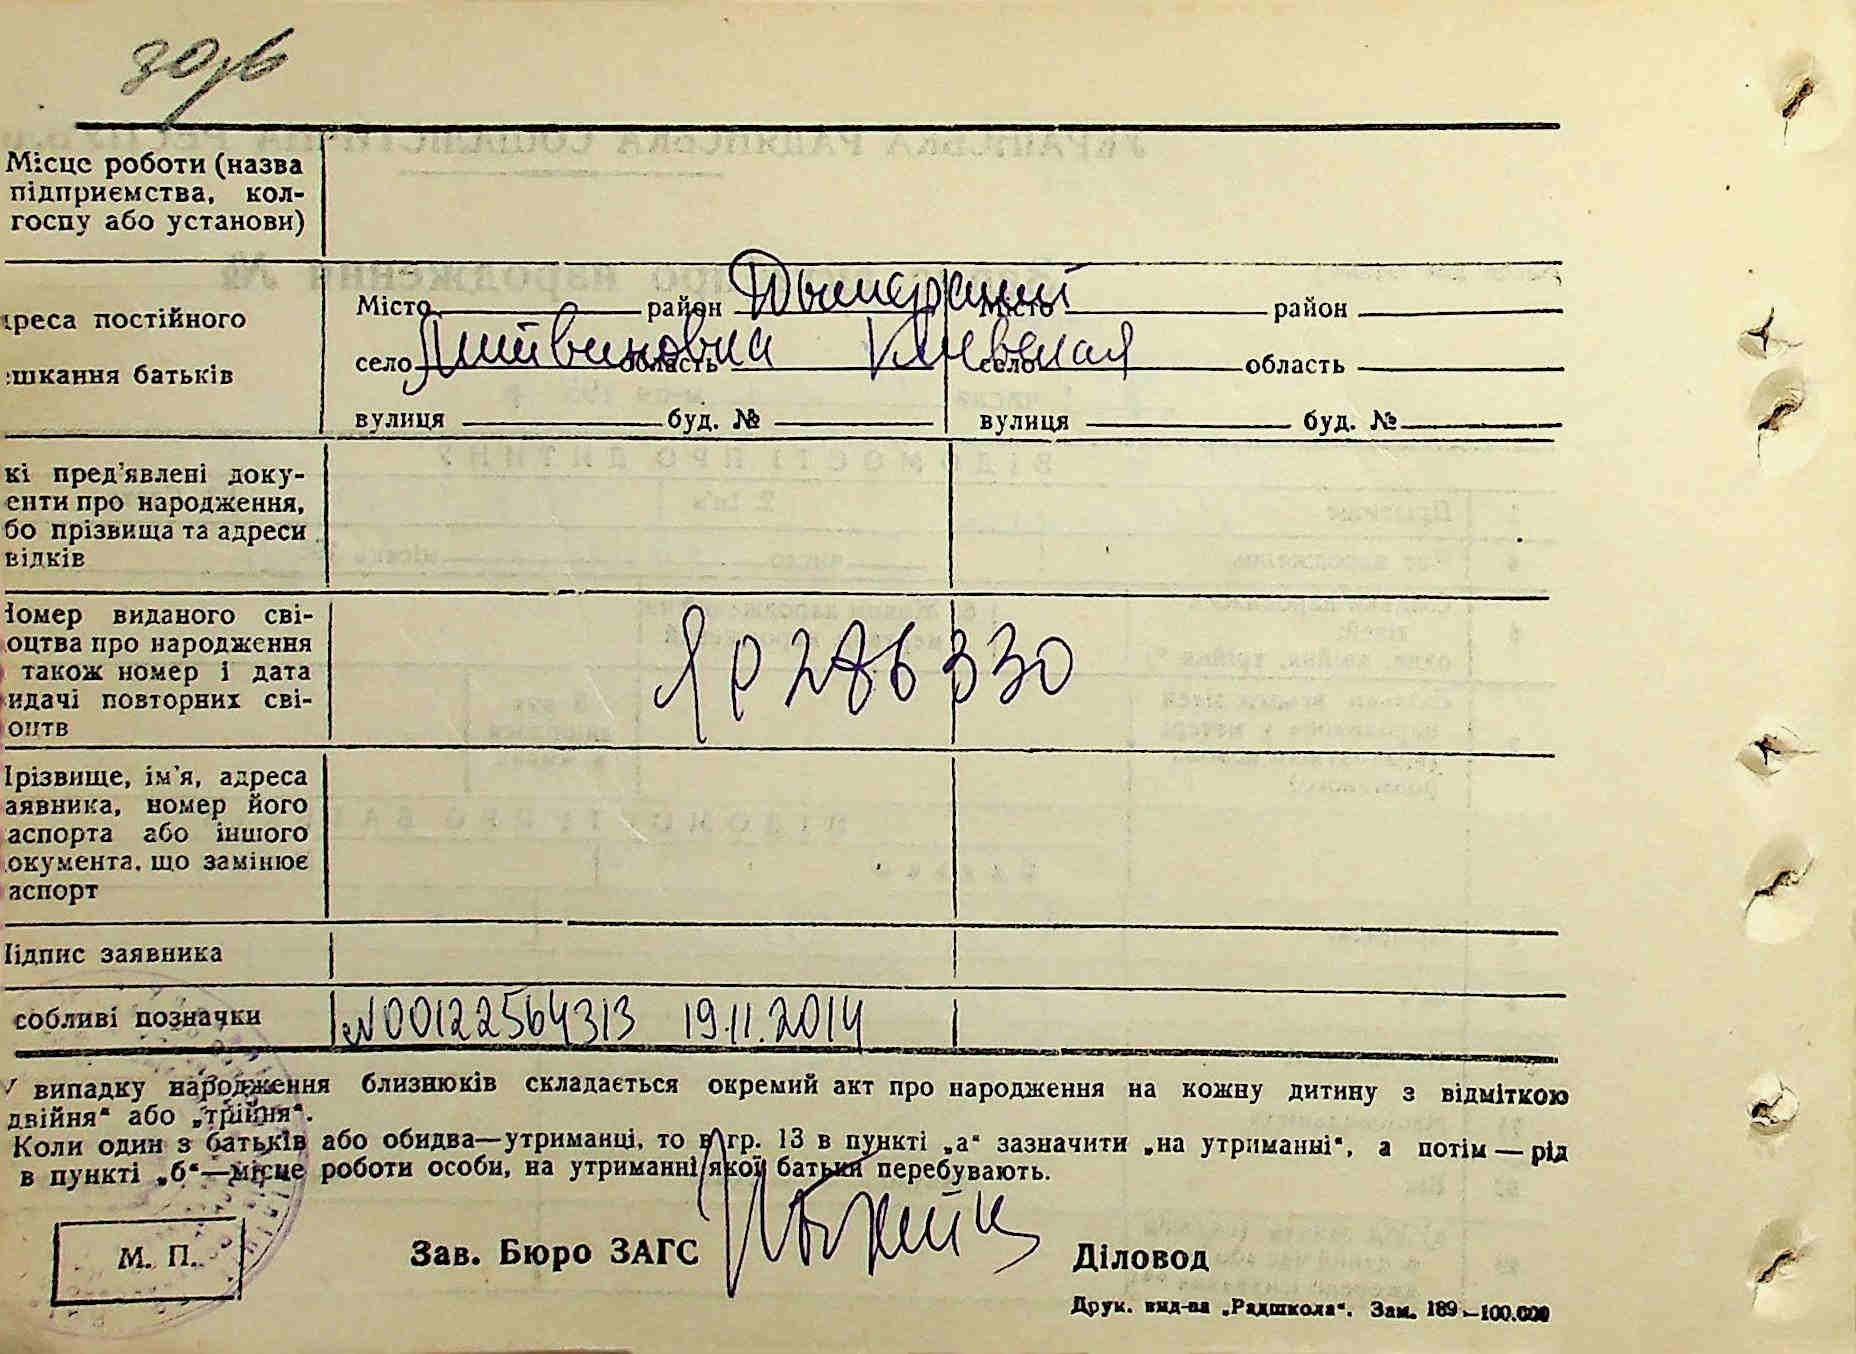 Місце роботи (назва
підприємства, кол-
госпу або установи)
дреса постійного
ешкання батьків
Місто район Дымерский Місто район
село Литвиновка область Киевская село область
вулиця буд. № вулиця буд. №
кі пред'явлені доку-
енти про народження,
бо прізвища та адреси
відків
Номер виданого сві-
оцтва про народження
також номер і дата
идачі повторних сві-
оцтв
ЯР 286330
Прізвище, ім'я, адреса
аявника, номер його
аспорта або іншого
окумента, що замінює
аспорт
Підпис заявника
собливі позначки
N00122564313 19.11.2014
У випадку народження близнюків складається окремий акт про народження на кожну дитину з відміткою
двійня" або „трійня".
Коли один з батьків або обидва—утриманці, то в гр. 13 в пункті „а" зазначити „на утриманні", а потім — рід
в пункті „б"—місце роботи особи, на утриманні якої батьки перебувають.
М. П.
Зав. Бюро ЗАГС
Діловод
Друк. вид-ва „Радшкола". Зам. 189—100.000